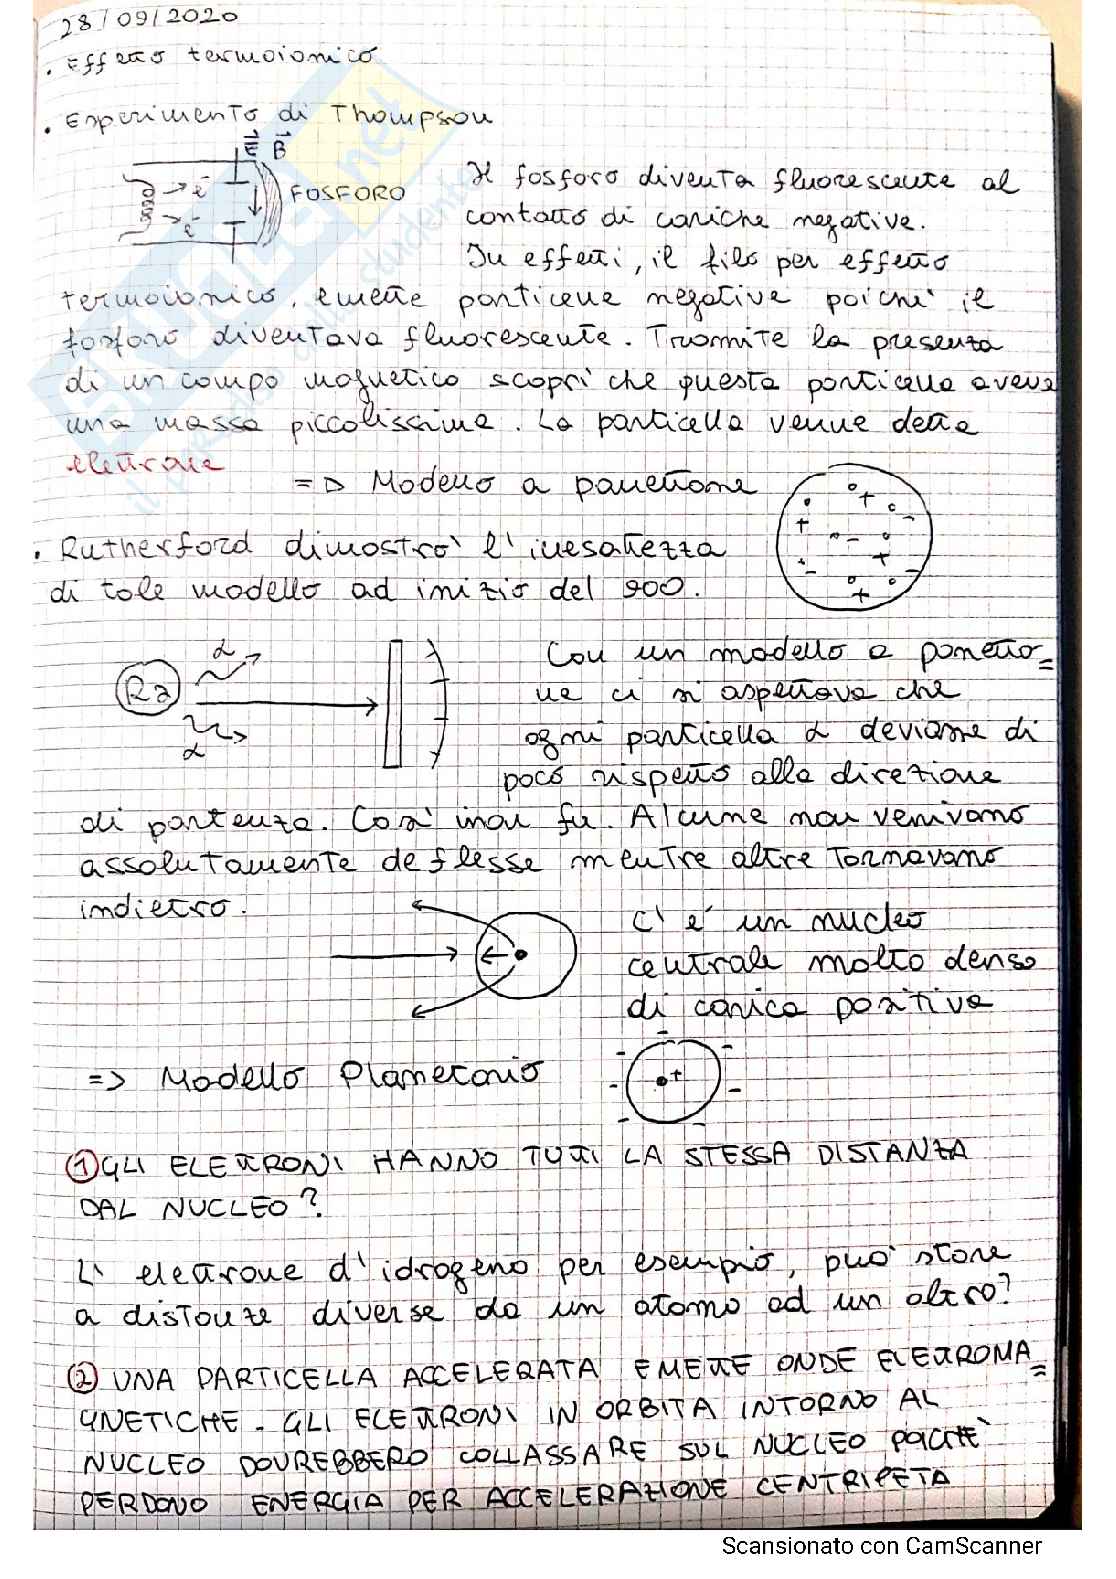 28/09/2020
. Effetto termoionico
. Esperimento di Thompson
E B
e-
e-
FOSFORO
Il fosforo diventa fluorescente al
contatto di cariche negative.
In effetti, il filo per effetto
termoionico, emette particelle negative poiché il
fosforo diventava fluorescente. Tramite la presenza
di un campo magnetico scoprì che questa particella aveva
una massa piccolissima. La particella venne detta
elettrone
=> Modello a panettone
. Rutherford dimostrò l'inesattezza
di tale modello ad inizio del 900.
Ra
α
α
Con un modello a panetto=
ne ci si aspettava che
ogni particella α deviasse di
poco rispetto alla direzione
di partenza. Così non fu. Alcune non venivano
assolutamente deflesse mentre altre tornavano
indietro.
C'è un nucleo
centrale molto denso
di carica positiva
=> Modello Planetario
+
① GLI ELETTRONI HANNO TUTTI LA STESSA DISTANZA
DAL NUCLEO?
L'elettrone d'idrogeno per esempio, può stare
a distanze diverse da un atomo ad un altro?
② UNA PARTICELLA ACCELERATA EMETTE ONDE ELETTROMA=
GNETICHE. GLI ELETTRONI IN ORBITA INTORNO AL
NUCLEO DOVREBBERO COLLASSARE SUL NUCLEO POICHÈ
PERDONO ENERGIA PER ACCELERAZIONE CENTRIPETA
Scansionato con CamScanner